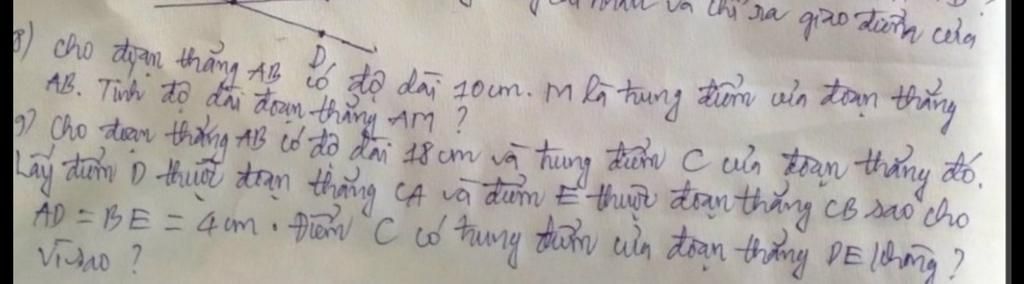 và chỉ ra giao điểm của
D
8) Cho đoạn thẳng AB có độ dài 10cm. M là trung điểm của đoạn thẳng
AB. Tính độ dài đoạn thẳng AM ?
9) Cho đoạn thẳng AB có độ dài 18cm và trung điểm C của đoạn thẳng đó.
Lấy điểm D thuộc đoạn thẳng CA và điểm E thuộc đoạn thẳng CB sao cho
AD = BE = 4cm. Điểm C có trung điểm của đoạn thẳng DE không ?
Vì sao ?